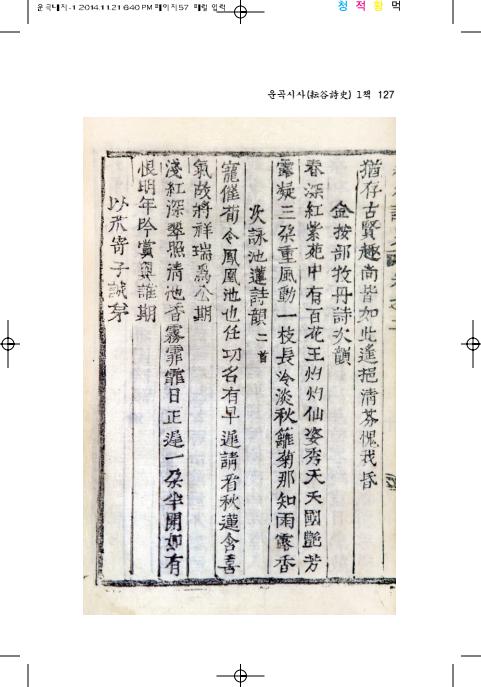 운곡내지-1 2014.11.21 6:40 PM 페이지57 매컬 입력
청 적 황 먹
운곡시사(耘谷詩史) 1책 127
猶存古賢趣尚皆如此遙挹清芬愧我昏
金按部牧丹詩次韻
春深紅紫苑中有百花王灼灼仙姿秀天天國艷芳
露凝三朶重風動一枝長冷淡秋籬菊那知雨露香
次詠池蓮詩韻二首
寵催荀令鳳凰池也任功名有早遲請看秋蓮含喜
氣故將祥瑞爲公期
淺紅深翠照清池香霧霏霏日正遲一朶半開如有
恨明年吟賞與誰期
以 寄子誠弟